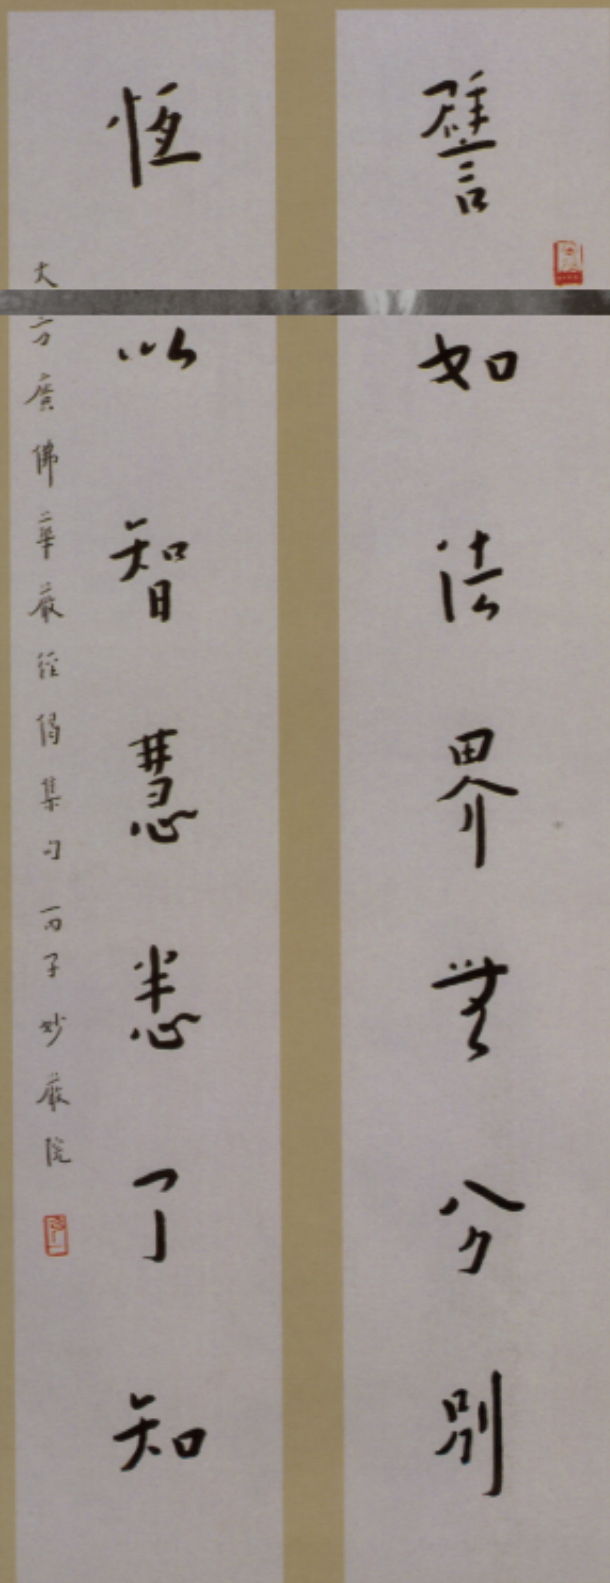 譬如法界無分別
恆以智慧悉了知
大方廣佛華嚴經偈集句 丙子 妙嚴院